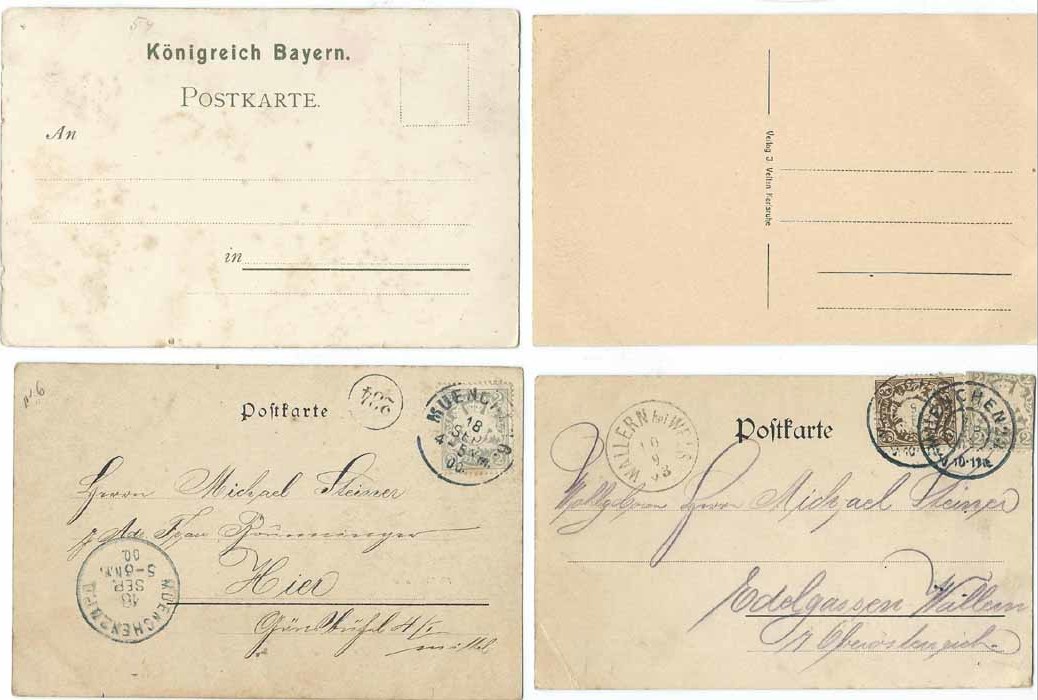 54
Königreich Bayern.
POSTKARTE.
An
in
Verlag J. Velten Karlsruhe
No 6
Postkarte
MUENCHEN
18
SEP
4-5Nm.
00
Herrn Michael Steiner
Hier
MUENCHEN
18
SEP.
5-6 Nm.
00
WALLERN bei WELS
10
9
Postkarte
MUENCHEN
Wohlgeboren Herrn Michael Steiner
Edelgassen Wallern
Oberösterreich